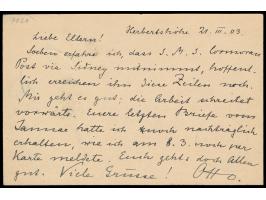 Herbertshöhe 21. III. 03.
Liebe Eltern!
Soeben erfahre ich, dass S. M. S. Cormoran
Post via Sidney mitnimmt, hoffent-
lich erreichen ihn diese Zeilen noch.
Mir geht es gut; die Arbeit schreitet
vorwärts. Eure letzten Briefe vom
Januar hatte ich noch nachträglich
erhalten, wie ich am 8. 3. noch per
Karte meldete. Euch geht's doch Allen
gut. Viele Grüsse! Otto.